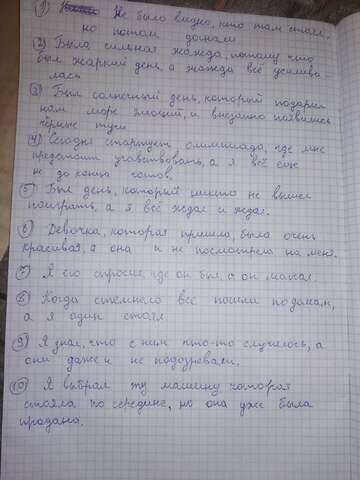 1) Не было видно, кто там стоял,
но потом догнали
2) Была сильная жажда, потому что
был жаркий день, а жажда всё усилива
лась
3) Был солнечный день, который подарил
нам море эмоций, и внезапно появились
чёрные тучи
4) Сегодня стартует олимпиада, где мне
предстоит учавствовать, а я всё ещё
не до конца готов.
5) Был день, который никто не вышел
поиграть, а я всё ждал и ждал.
6) Девочка, которая пришла, была очень
красивая, а она и не посмотрела на меня.
7) Я его спросил, где он был, а он молчал.
8) Когда стемнело все пошли по домам,
а я один стоял
9) Я знал, что с ним что-то случилось, а
они даже и не подозревали.
10) Я выбрал ту машину которая
стояла по середине, но она уже была
продана.